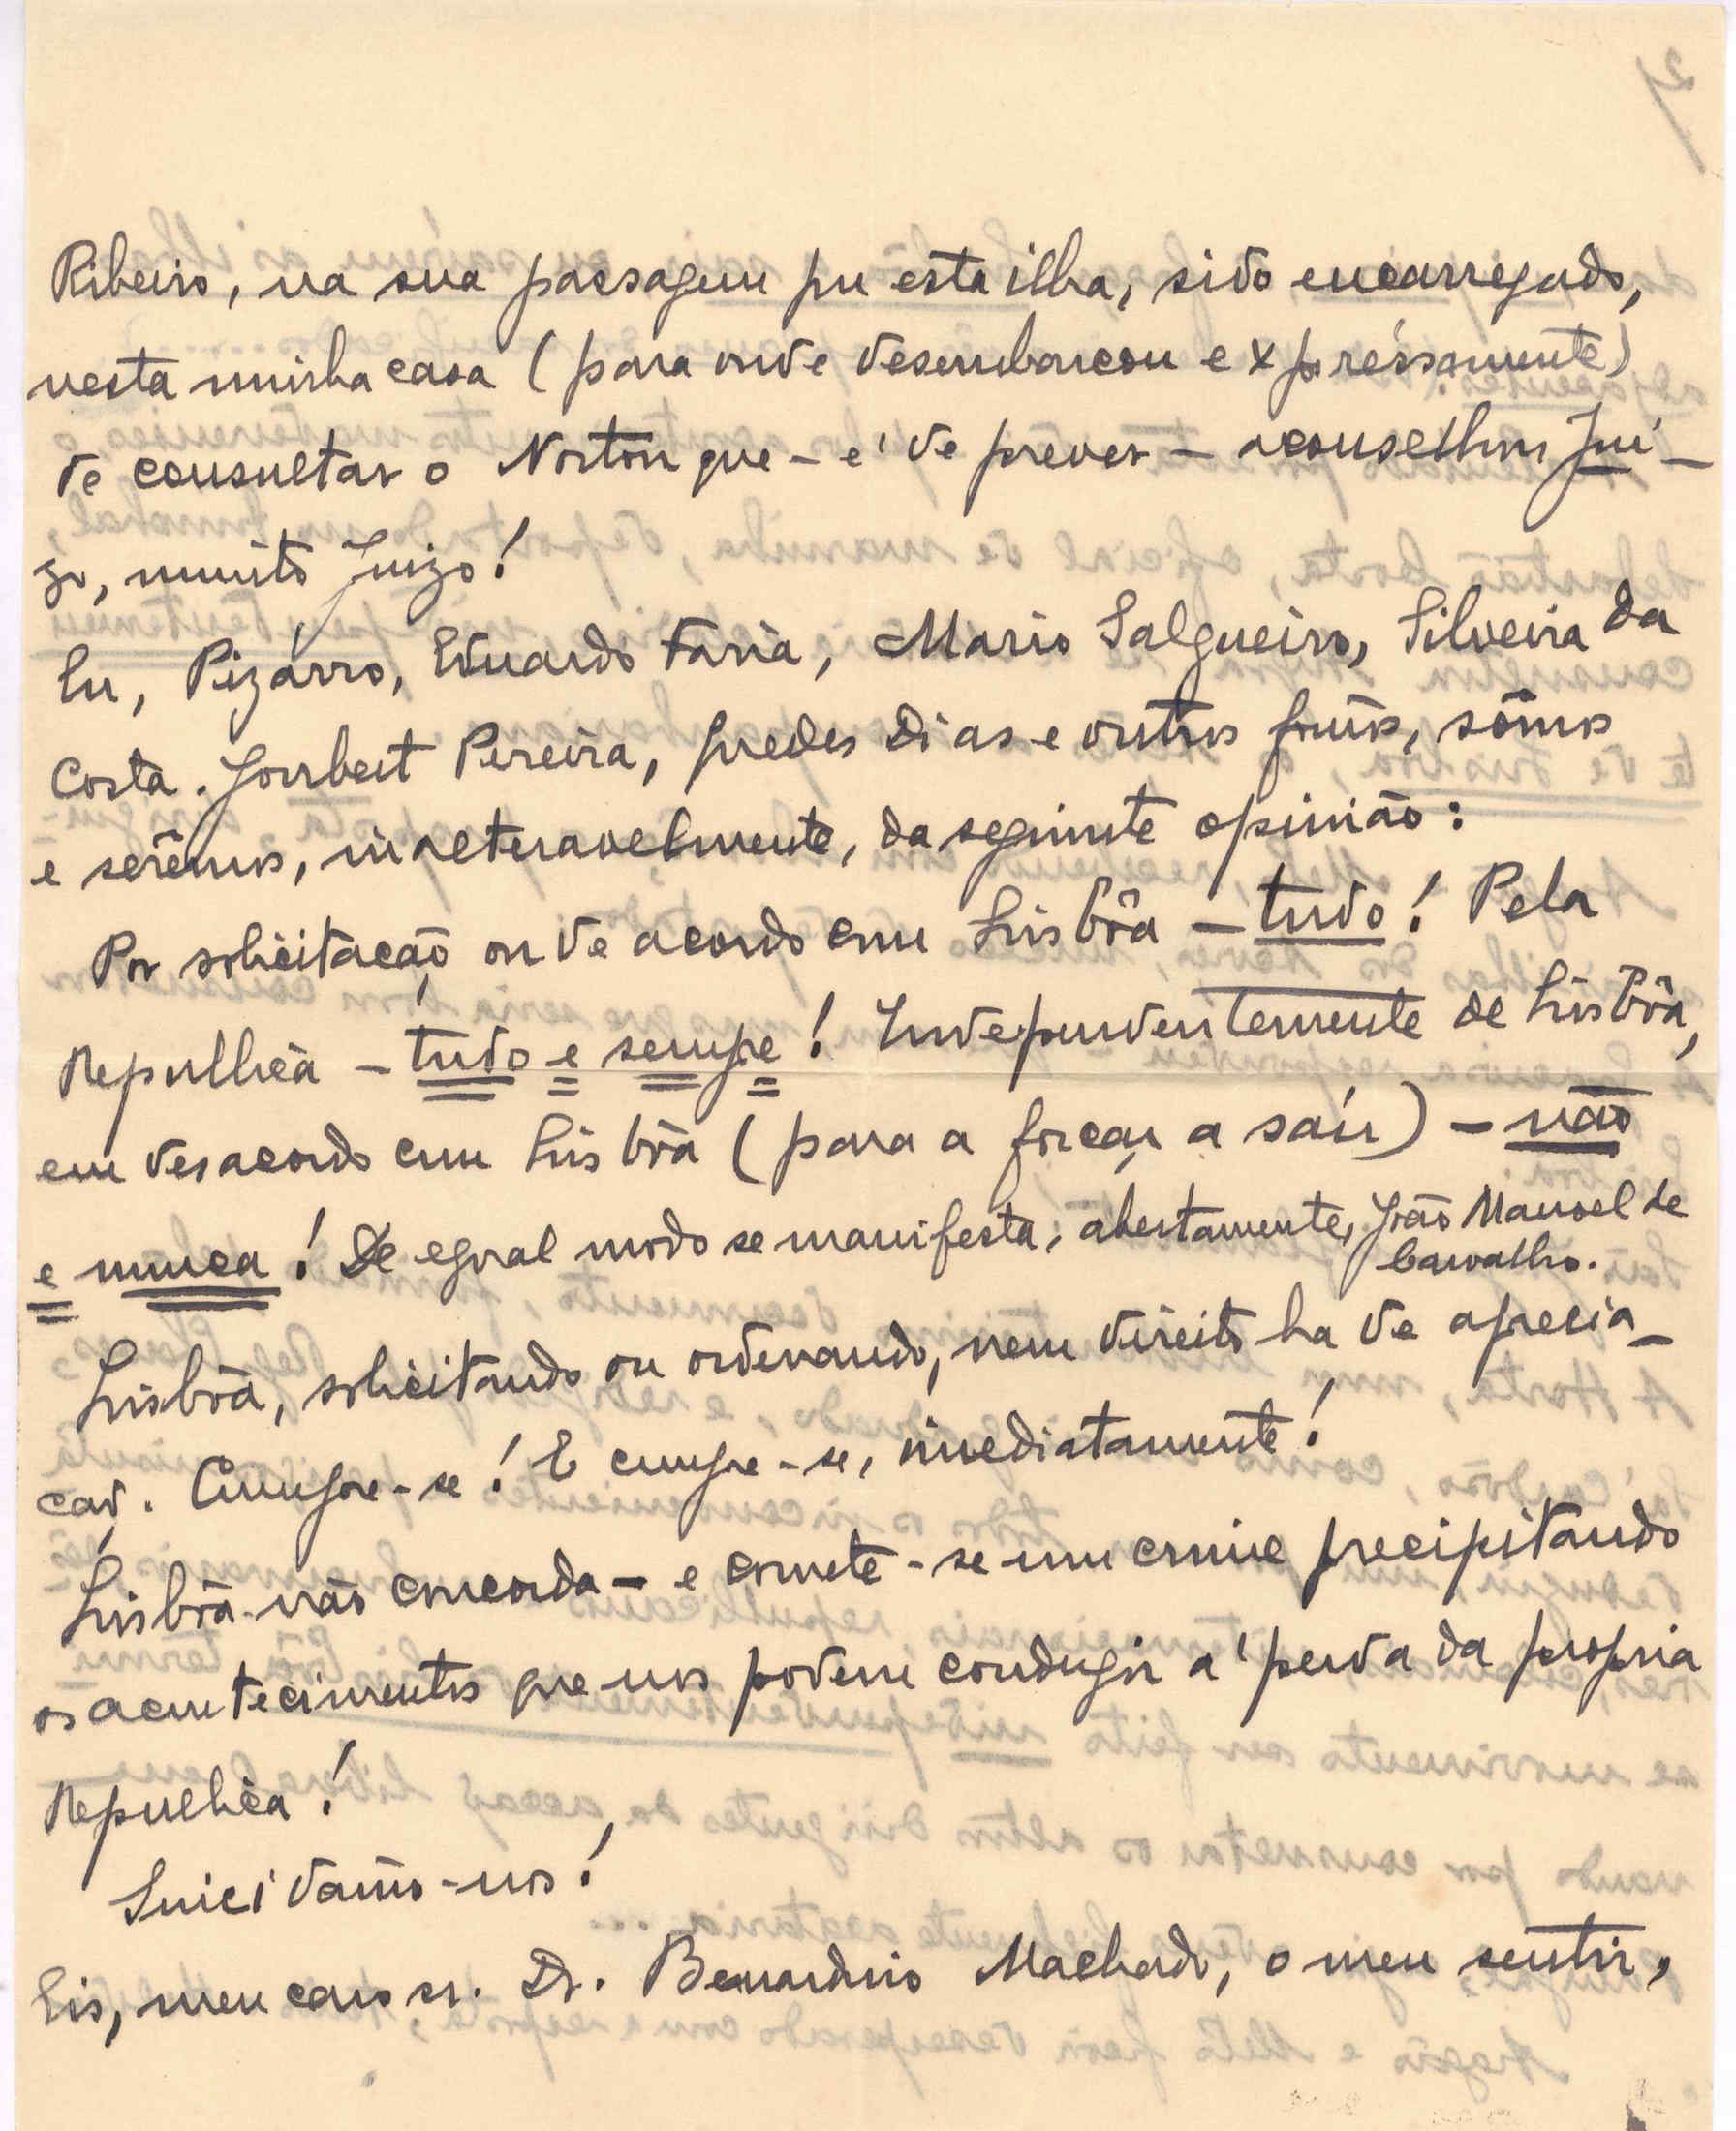 Ribeiro, na sua passagem por esta ilha, sido encarregado,
nesta minha casa (para onde desembarcou expréssamente)
de consultar o Norton que - e' de prever - aconselhou Jui-
zo, muito Juizo!
Eu, Pizarro, Eduardo Faria, Mario Salgueiro, Silveira da
Costa. Joubert Pereira, Guedes Dias e outros fômos, sômos
e serêmos, inalteravelmente, da seguinte opinião:
Por solicitação ou de acordo com Lisbôa - tudo! Pela
Republica - tudo e sempre! Independentemente de Lisbôa,
em desacordo com Lisbôa (para a forçar a saír) - não
e nunca! De egual modo se manifesta, abertamente, João Manoel de
Carvalho.
Lisbôa, solicitando ou ordenando, nem direito ha de aprecia-
ção. Cumpre-se! E cumpre-se, imediatamente!
Lisbôa não concorda - e comete-se um crime precipitando
os acontecimentos que nos podem conduzir a' perda da propria
Republica!
Suicidamo-nos!
Eis, meu caro sr. Dr. Bernardino Machado, o meu sentir,